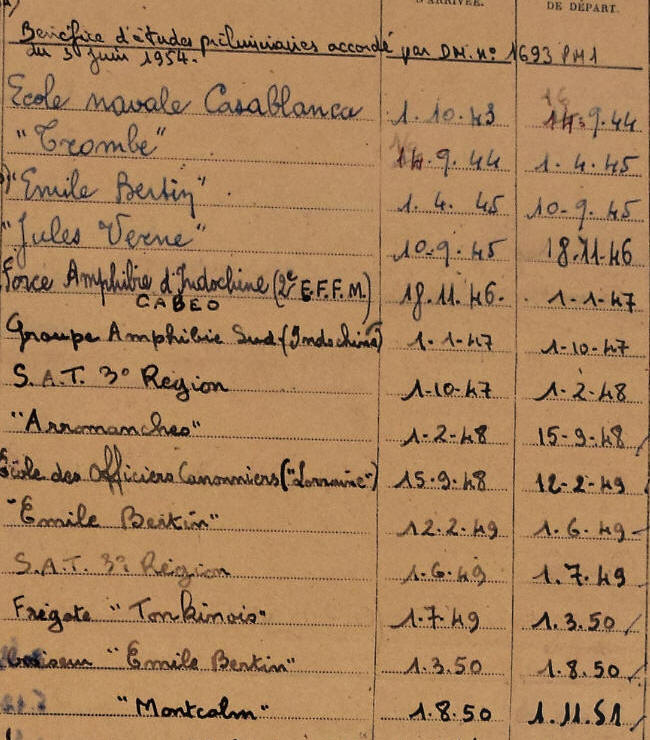 D'ARRIVÉE. DE DÉPART.
Bénéfice d'études préliminaires accordé par DM. N° 1693 PM1
du 3 Juin 1954.
Ecole navale Casablanca 1.10.43 9.44
"Trombe" 14.9.44 1.4.45
"Emile Bertin" 1.4.45 10-9.45
"Jules Verne" 10-9.45 18.11.46
Force Amphibie d'Indochine (2e E.F.F.M.) 18.11.46. 1-1-47
CABEO
Groupe Amphibie Sud (Indochine) 1-1-47 1-10-47
S.A.T. 3° Région 1-10-47 1-2-48
"Arromanches" 1-2-48 15-9-48
Ecole des Officiers Canonniers ("Lorraine") 15.9.48 12-2-49
"Emile Bertin" 12.2.49 1.6.49
S.A.T. 3° Région 1.6.49 1.7.49
Frégate "Tonkinois" 1.7.49 1.3.50
Croiseur "Emile Bertin" 1.3.50 1.8.50
"Montcalm" 1.8.50 1.11.51